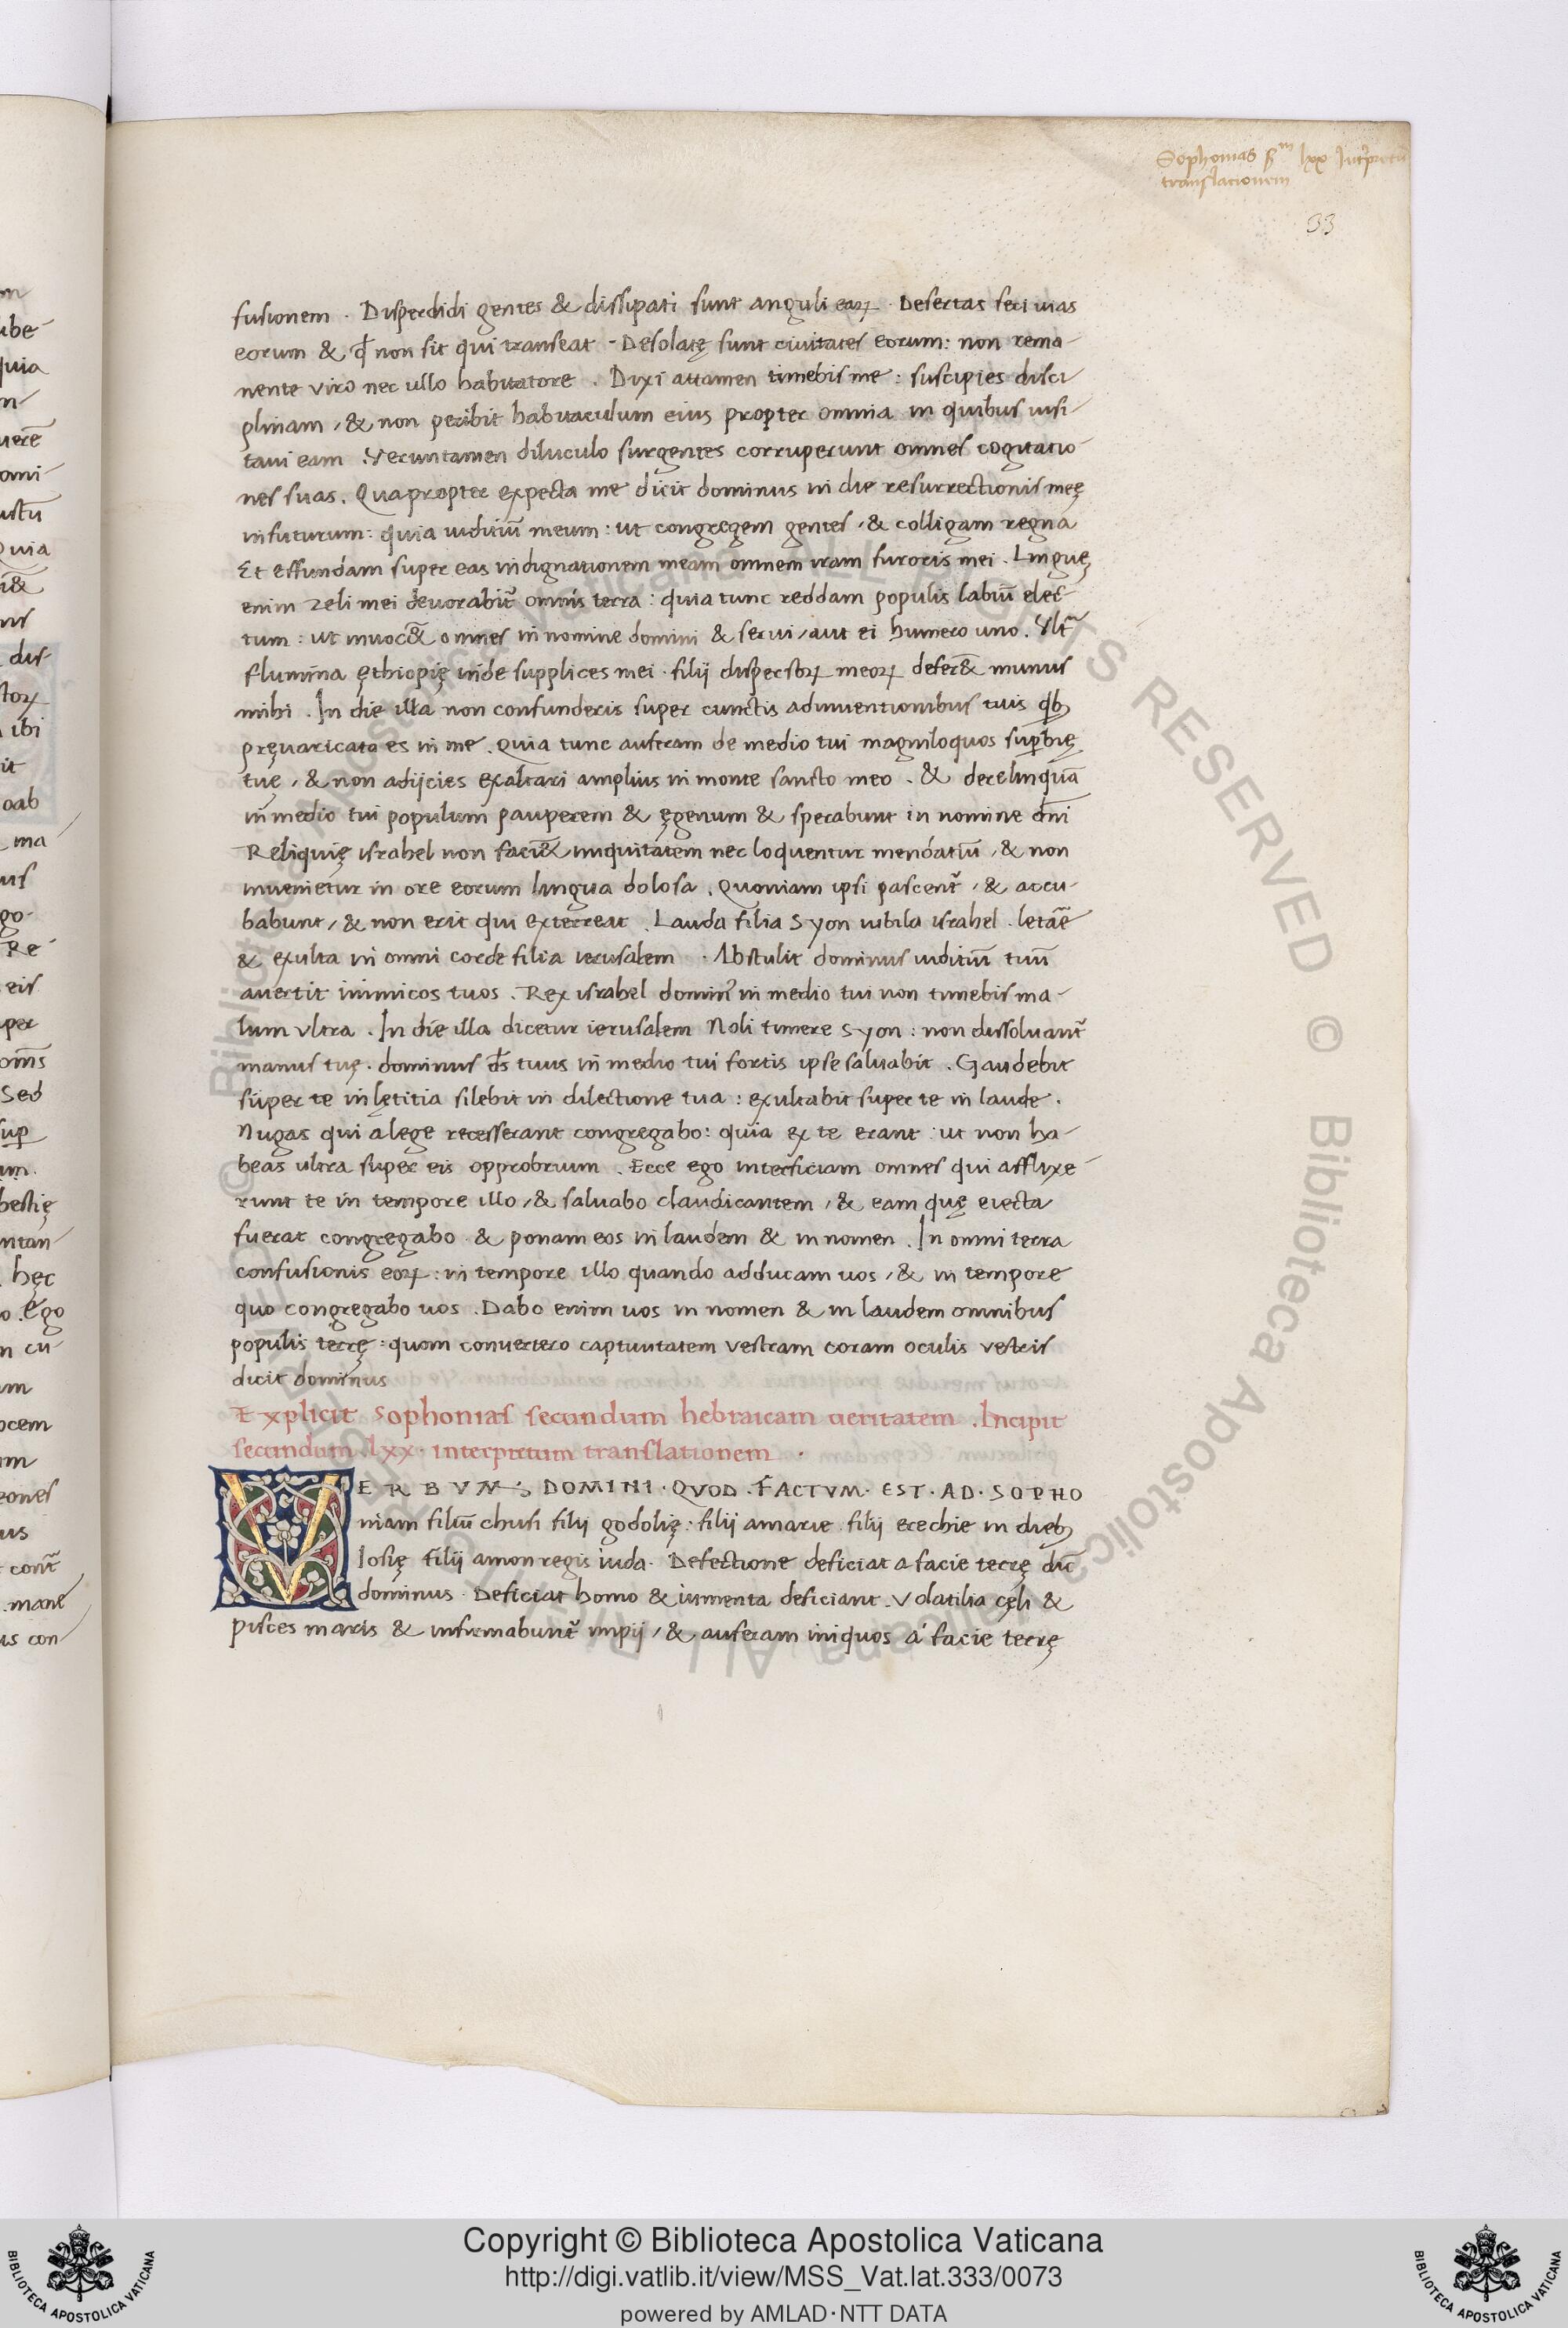 Sophonias sᵐ lxx Interpretum
translationem
33
fusionem . Disperdidi gentes & dissipati sunt anguli eaꝝ . Desertas feci uias
eorum & ꝙ non sit qui transeat - Desolatę sunt ciuitates eorum: non rema-
nente viro nec ullo habitatore . Dixi attamen timebis me : suscipies disci-
plinam , & non peribit habitaculum eius propter omnia in quibus uisi-
taui eam . Veruntamen diluculo surgentes corruperunt omnes cogitatio-
nes suas . Quapropter expecta me dicit dominus in die resurrectionis meę
in futurum : quia iuditiū meum : ut congregem gentes , & colligam regna
Et effundam super eas indignationem meam omnem iram furoris mei . Linguę
enim zeli mei deuorabit᷑ omnis terra : quia tunc reddam populis labiū elec-
tum : ut inuoc&̄ omnes in nomine domini & serui,aut ei humero uno . Vlt᷑
flumina ęthiopię inde supplices mei . filij dispersoꝝ meoꝝ defer&̄ munus
mihi . In die illa non confunderis super cunctis adinuentionibus tuis qb;
pręuaricata es in me . Quia tunc auferam de medio tui magniloquos suꝑbię
tuę , & non adijcies exaltari amplius in monte sancto meo . & derelinquā
in medio tui populum pauperem & ęgenum & sperabunt in nomine dn̄i
Reliquię israhel non faci&̄ iniquitatem nec loquentur mendatiū , & non
inuenietur in ore eorum lingua dolosa . Quoniam ipsi pascent᷑ , & accu-
babunt , & non erit qui exterreat . Lauda filia Syon iubila israhel . letāe
& exulta in omni corde filia ierusalem . Abstulit dominus iuditiū tuū
auertit inimicos tuos . Rex israhel domin᷒ in medio tui non timebis ma-
lum vltra . In die illa dicetur ierusalem Noli timere syon : non dissoluant᷑
manus tuę . dominus ds̄ tuus in medio tui fortis ipse saluabit . Gaudebit
super te in lętitia silebit in dilectione tua : exultabit super te in laude .
Nugas qui a lege recesserant congregabo : quia ex te erant : ut non ha-
beas ultra super eis opprobrium . Ecce ego interficiam omnes qui afflixe-
runt te in tempore illo , & saluabo claudicantem , & eam quę eiecta
fuerat congregabo . & ponam eos in laudem & in nomen . In omni terra
confusionis eoꝝ : in tempore illo quando adducam uos , & in tempore
quo congregabo uos . Dabo enim uos in nomen & in laudem omnibus
populis terrę : quom conuertero captiuitatem vestram coram oculis vestris
dicit dominus
Explicit Sophonias secundum hebraicam ueritatem . Incipit
secundum .lxx. interpretum translationem .
VERBVM DOMINI . QVOD . FACTVM . EST . AD . SOPHO
niam filiū chusi filij godolię : filij amarie . filij ezechie in dieb;
Iosię filij amon regis iuda . Defectione deficiat a facie terrę dic̄
dominus . Deficiat homo & iumenta deficiant . Volatilia cęli &
pisces maris & infirmabunt᷑ impij , & auferam iniquos á facie terrę
Copyright © Biblioteca Apostolica Vaticana
http://digi.vatlib.it/view/MSS_Vat.lat.333/0073
powered by AMLAD·NTT DATA
BIBLIOTECA APOSTOLICA VATICANA
BIBLIOTECA APOSTOLICA VATICANA